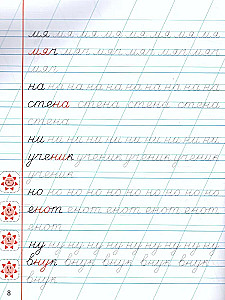 мя мя мя мя мя мя мя мя
мяч мяч мяч мяч мяч мяч мяч
мяч
на на на на на на на на на на
стена стена стена стена
стена
ни ни ни ни ни ни ни ни ни ни
ученик ученик ученик ученик
ученик
но но но но но но но но но но
енот енот енот енот енот
енот
ну ну ну ну ну ну ну ну ну ну
внук внук внук внук внук
внук
8